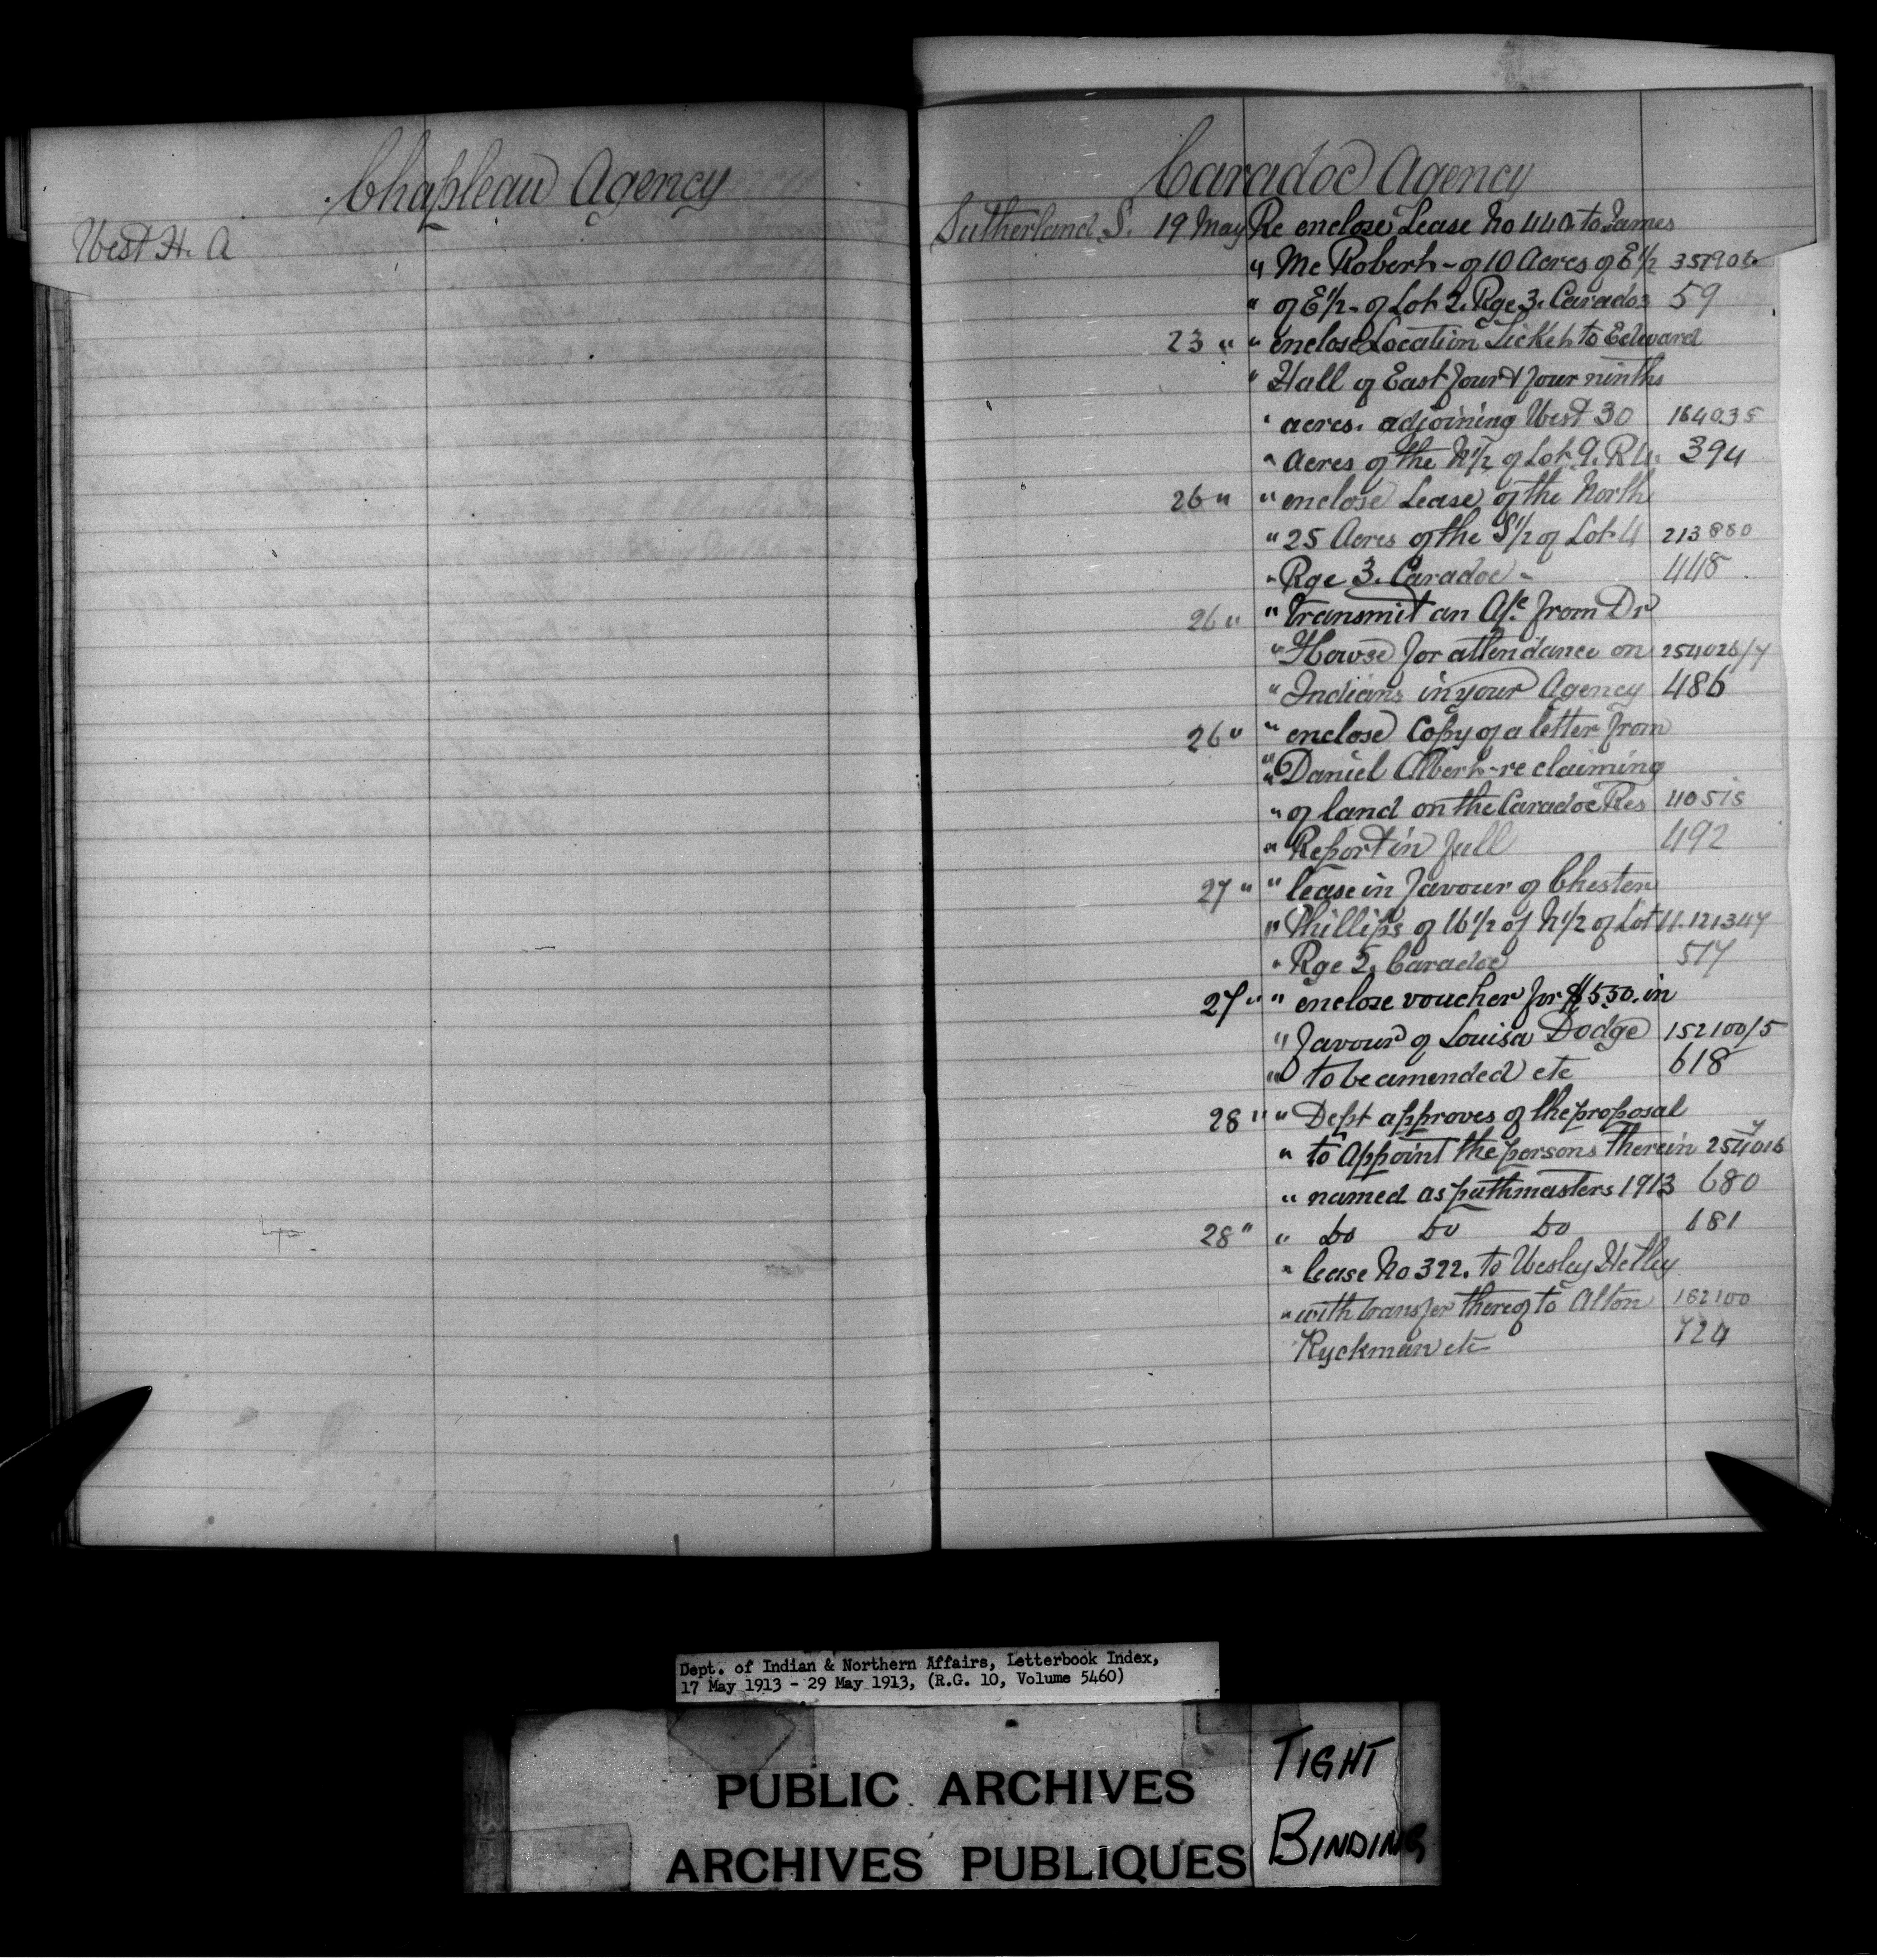 Chapleau Agency
West H. A
Caradoc Agency
Sutherland S. 19 May Re enclose Lease No 440. to James
" Mc Robert - of 10 Acres of E½ 357906
" of E½ - of Lot 2. Rge 3. Caradoc 59
23 " " enclose Location Ticket to Edward
" Hall of East four & four ninths
" acres. adjoining West 30 164035
" Acres of the N½ of Lot 9. R4. 394
26 " " enclose Lease of the North
" 25 Acres of the S½ of Lot 4 213880
" Rge 3. Caradoc - 448
26 " " transmit an A/c from Dr
" Howse for attendance on 254026/7
" Indians in your Agency 486
26 " " enclose Copy of a letter from
" Daniel Albert - re claiming
" of land on the Caradoc Res 40515
" Report in full 492
27 " " lease in favour of Chester
" Phillips of W½ of N½ of Lot 11. 121347
" Rge 5. Caradoc 517
27 " " enclose voucher for $5.50. in
" favour of Louisa Dodge 152100/5
" to be amended etc 618
28 " " Dept approves of the proposal
" to Appoint the persons Therein 254016 7
" named as pathmasters 1913 680
28 " " Do Do Do 681
" lease No 322. to Wesley
" with transfer thereof to Alton 162100
Ryckman etc 724
Dept. of Indian & Northern Affairs, Letterbook Index,
17 May 1913 - 29 May 1913, (R.G. 10, Volume 5460)
PUBLIC ARCHIVES
ARCHIVES PUBLIQUES
TIGHT
BINDING